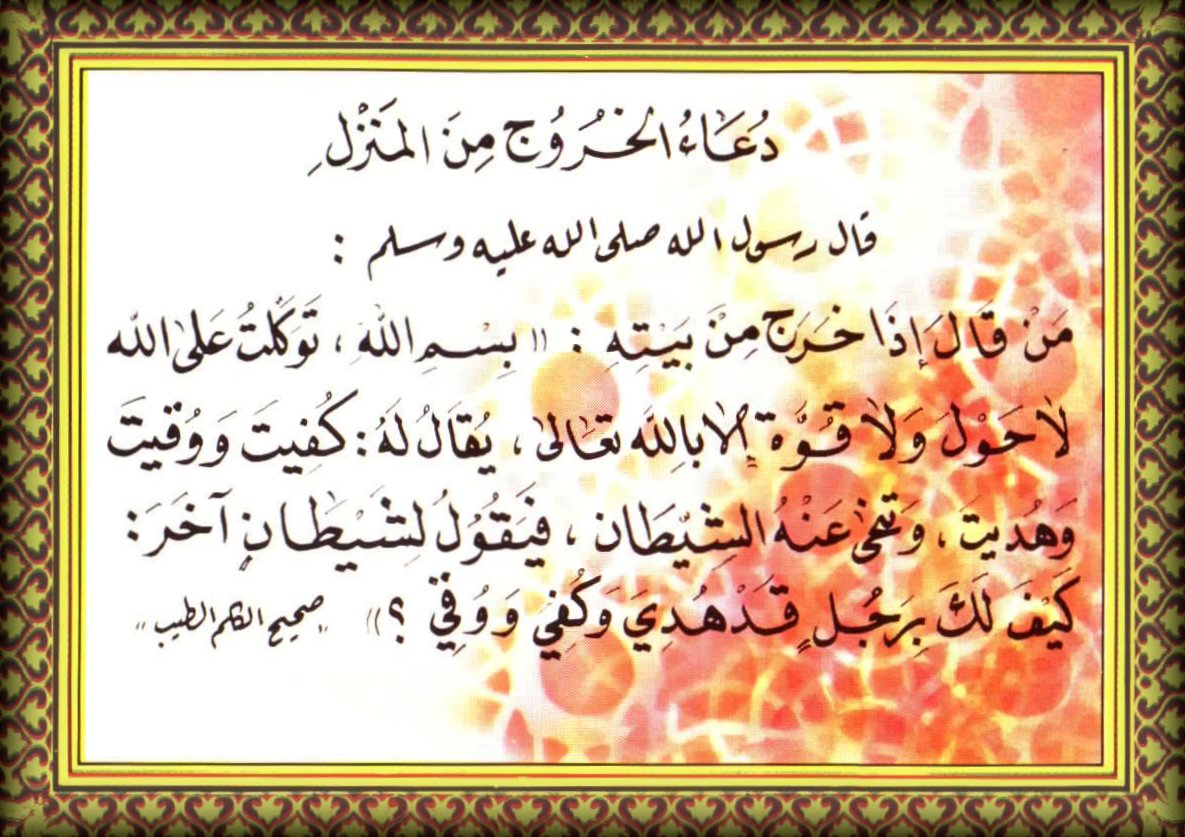 دُعَاءُ الخُرُوج مِنَ المَنْزِل
قال رسول الله صلى الله عليه وسلم :
مَنْ قَالَ إِذَا خَرَجَ مِنْ بَيْتِهِ : (( بِسْمِ اللَّهِ ، تَوَكَّلْتُ عَلَى الله
لاَ حَوْلَ وَلاَ قُوَّة إِلا بِاللَّه تَعَالَى ، يُقَالُ لَهُ : كُفِيتَ وَوُقِيتَ
وَهُدِيتَ ، وَتَنَحَّى عَنْهُ الشَّيْطَان ، فَيَقُولُ لِشَيْطَانٍ آخَرَ :
كَيْفَ لَكَ بِرَجُلٍ قَدْ هُدِيَ وَكُفِيَ وَوُقِيَ ؟ )) " صحيح الكلم الطيب "